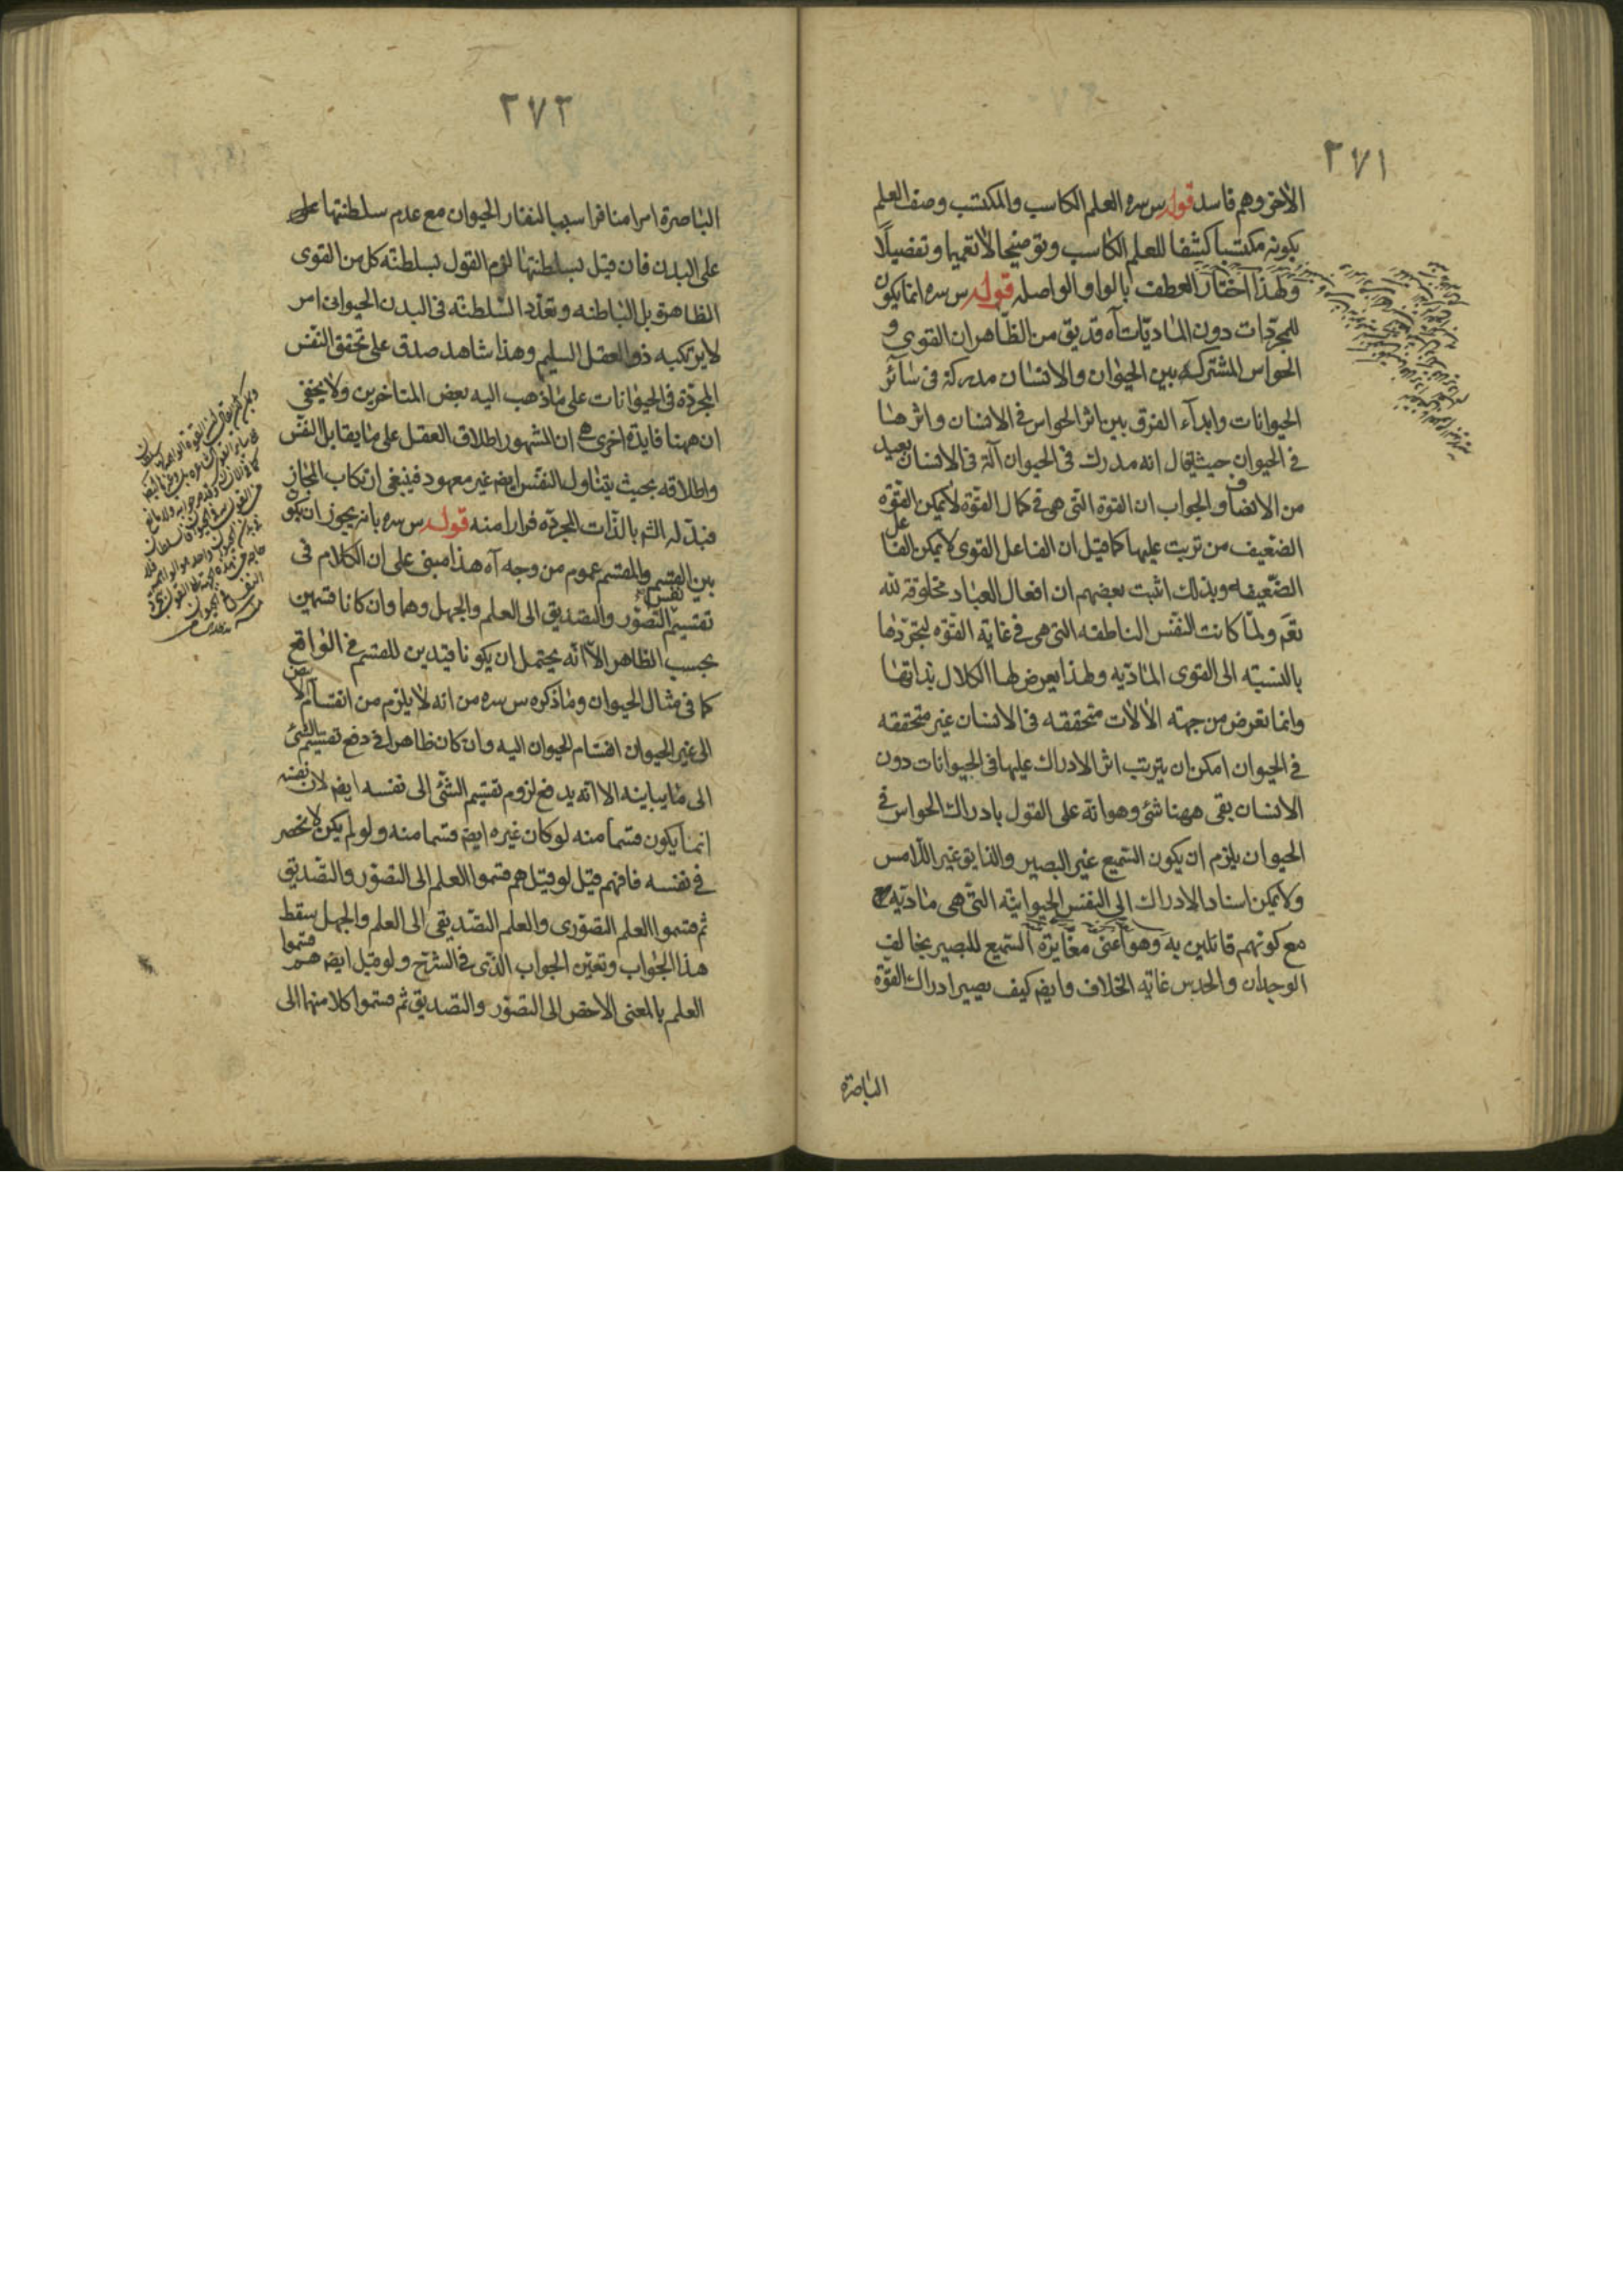 ٢٧١
الاخر وهم فاسد قوله س سره العلم الكاسب والمكتسب وصف العلم
بكونه مكتسبا كشفا للعلم الكاسب وتوضيحا لا تعميما وتفصيلا
ولهذا اختار العطف بالواو الواصله قوله س سره انما يكون
للمجردات دون الماديات آه قد يق من الظاهر ان القوى و
الحواس المشتركة بين الحيوان والانسان مدركة فى سائر
الحيوانات وابداء الفرق بين اثر الحواس فى الانسان واثرها
فى الحيوان حيث يقال انه مدرك فى الحيوان آلة فى الانسان بعيد
من الانصاف والجواب ان القوة التى هى فى كمال القوة لا يمكن القوة
الضعيف من ترتب عليها كما قيل ان الفاعل القوى لا يمكن الفاعل
الضعيف وبذلك اثبت بعضهم ان افعال العباد مخلوقة لله
تعم ولما كانت النفس الناطقه التى هى فى غاية القوه لتجردها
بالنسبة الى القوى الماديه ولهذا يعرض لها الكلال بذاتها
وانما تعرض من جهته الآلات متحققه فى الانسان غير متحققه
فى الحيوان امكن ان يترتب اثر الادراك عليها فى الحيوانات دون
الانسان بقى ههنا شئ وهو انه على القول بادراك الحواس فى
الحيوان يلزم ان يكون السميع غير البصير والذايق غير اللامس
ولا يمكن اسناد الادراك الى النفس الحيوانية التى هى ماديه
مع كونهم قائلين به وهو اعنى مغايرة السميع للبصير يخالف
الوجدان والحدس غايه الخلاف وايض كيف يصير ادراك القوة
الباصرة
٢٧٢
الباصرة امرا منافرا سببا لنفار الحيوان مع عدم سلطنتها على
على البدن فان قيل بسلطنتها لزم القول بسلطنة كل من القوى
الظاهرة بل الباطنه وتعدد السلطنة فى البدن الحيوانى امر
لا يرتكبه ذو العقل السليم وهذا شاهد صدق على تحقق النفس
المجردة فى الحيوانات على ما ذهب اليه بعض المتاخرين ولا يخفى
ان ههنا فايدة اخرى هى ان المشهور اطلاق العقل على ما يقابل النفس
واطلاقه بحيث يتناول النفس ايض غير معهود فينبغى ارتكاب المجاز
فبدله الش بالذات المجرده فرارا منه قوله س سره بانه يجوز ان يكون
بين القسم والمقسم عموم من وجه آه هذا مبنى على ان الكلام فى
نفس
تقسيم التصور والتصديق الى العلم والجهل وهما وان كانا قسمين
بحسب الظاهر الا انه يحتمل ان يكونا قيدين للقسم فى الواقع
كما فى مثال الحيوان وما ذكره س سره من انه لا يلزم من انقسام الابيض
الى غير الحيوان اقسام الحيوان اليه وان كان ظاهرا فى دفع تقسيم الشئ
الى ما يباينه الا انه يدفع لزوم تقسيم الشئ الى نفسه ايض لان نفسه
انما يكون قسما منه لو كان غيره ايض قسما منه ولو لم يكن لانحصر
فى نفسه فافهم قيل لو قيل هم قسموا العلم الى التصور والتصديق
ثم قسموا العلم التصورى والعلم التصديقى الى العلم والجهل سقط
هذا الجواب وتعين الجواب الذى فى الشرح ولو قيل ايض هم قسموا
العلم بالمعنى الاخص الى التصور والتصديق ثم قسموا كلا منهما الى